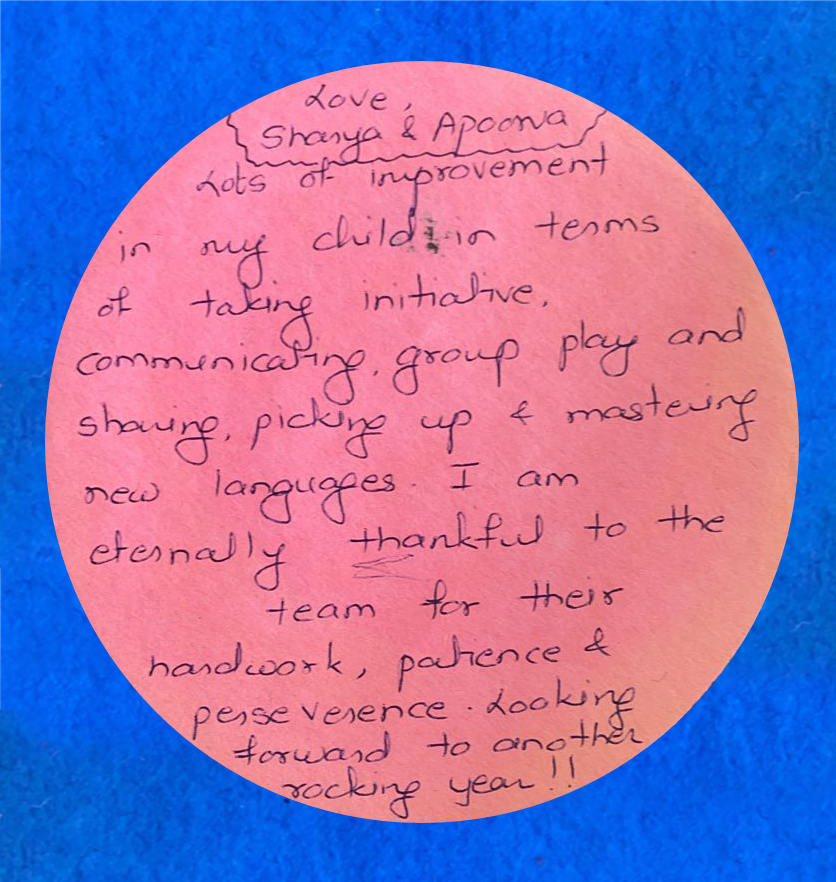 Love,
Shanya & Apoorva
Lots of improvement
in my child in terms
of taking initiative,
communicating, group play and
sharing, picking up & mastering
new languages. I am
eternally thankful to the
team for their
hardwork, patience &
perseverence. Looking
forward to another
rocking year!!